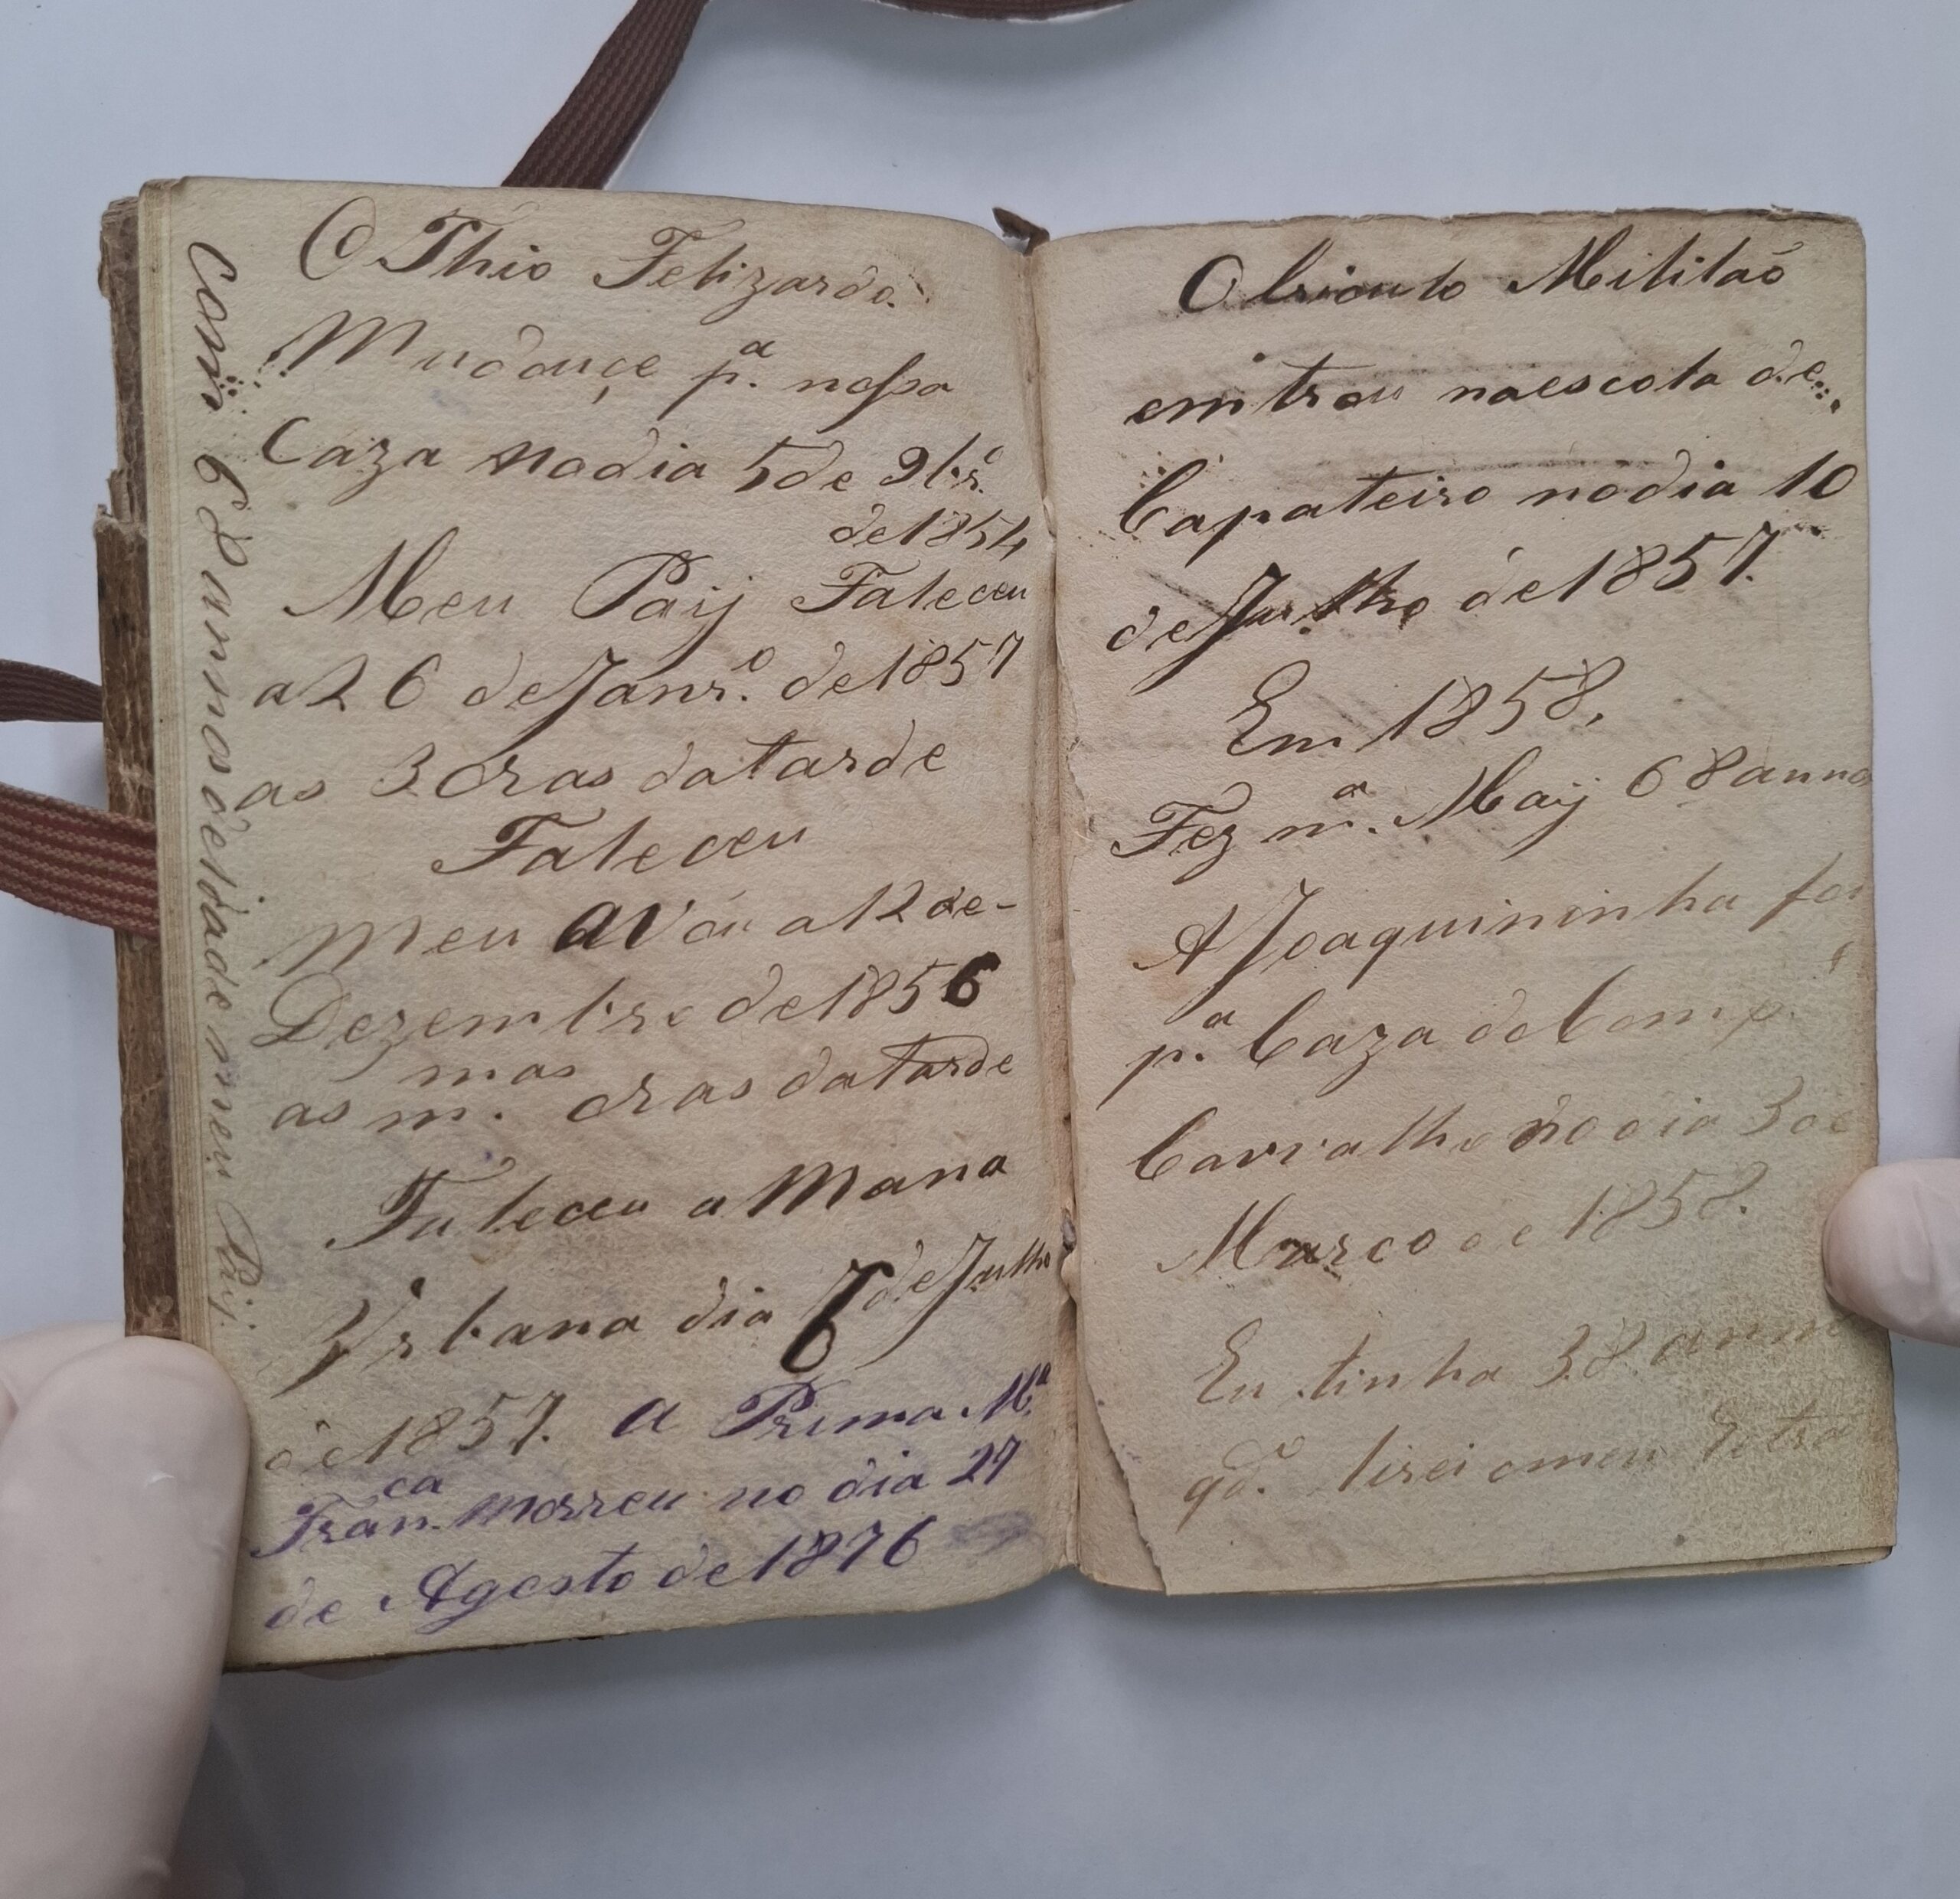 O Thio Felizardo.
Mudouçe p.ª nossa
Caza no dia 5 de 9br.º
de 1854
Meu Paij Faleceu
a 26 de Janr.º de 1857
as 3 Oras da tarde
Faleceu
Meu avou a 12 de-
Dezembro de 1856
as m.mas oras da tarde
Faleceu a Mana
Urbana dia 7 de Julho
de 1857. a Prima M.ª
Fran.ca morreu no dia 27
de Agosto de 1876
Com 68 annos de eidade meu Pij.
O Crioulo Militaõ
emtrou na escola de
Capateiro no dia 10
de Julho de 1857.
Em 1858,
Fez m.ª Maij 68 anno
A Joaquininha foi
p.ª Caza do Comp.
Carvalho no dia 3 de
Marco de 1858.
Eu tinha 38 anno
qd.º tirei o meu Retra